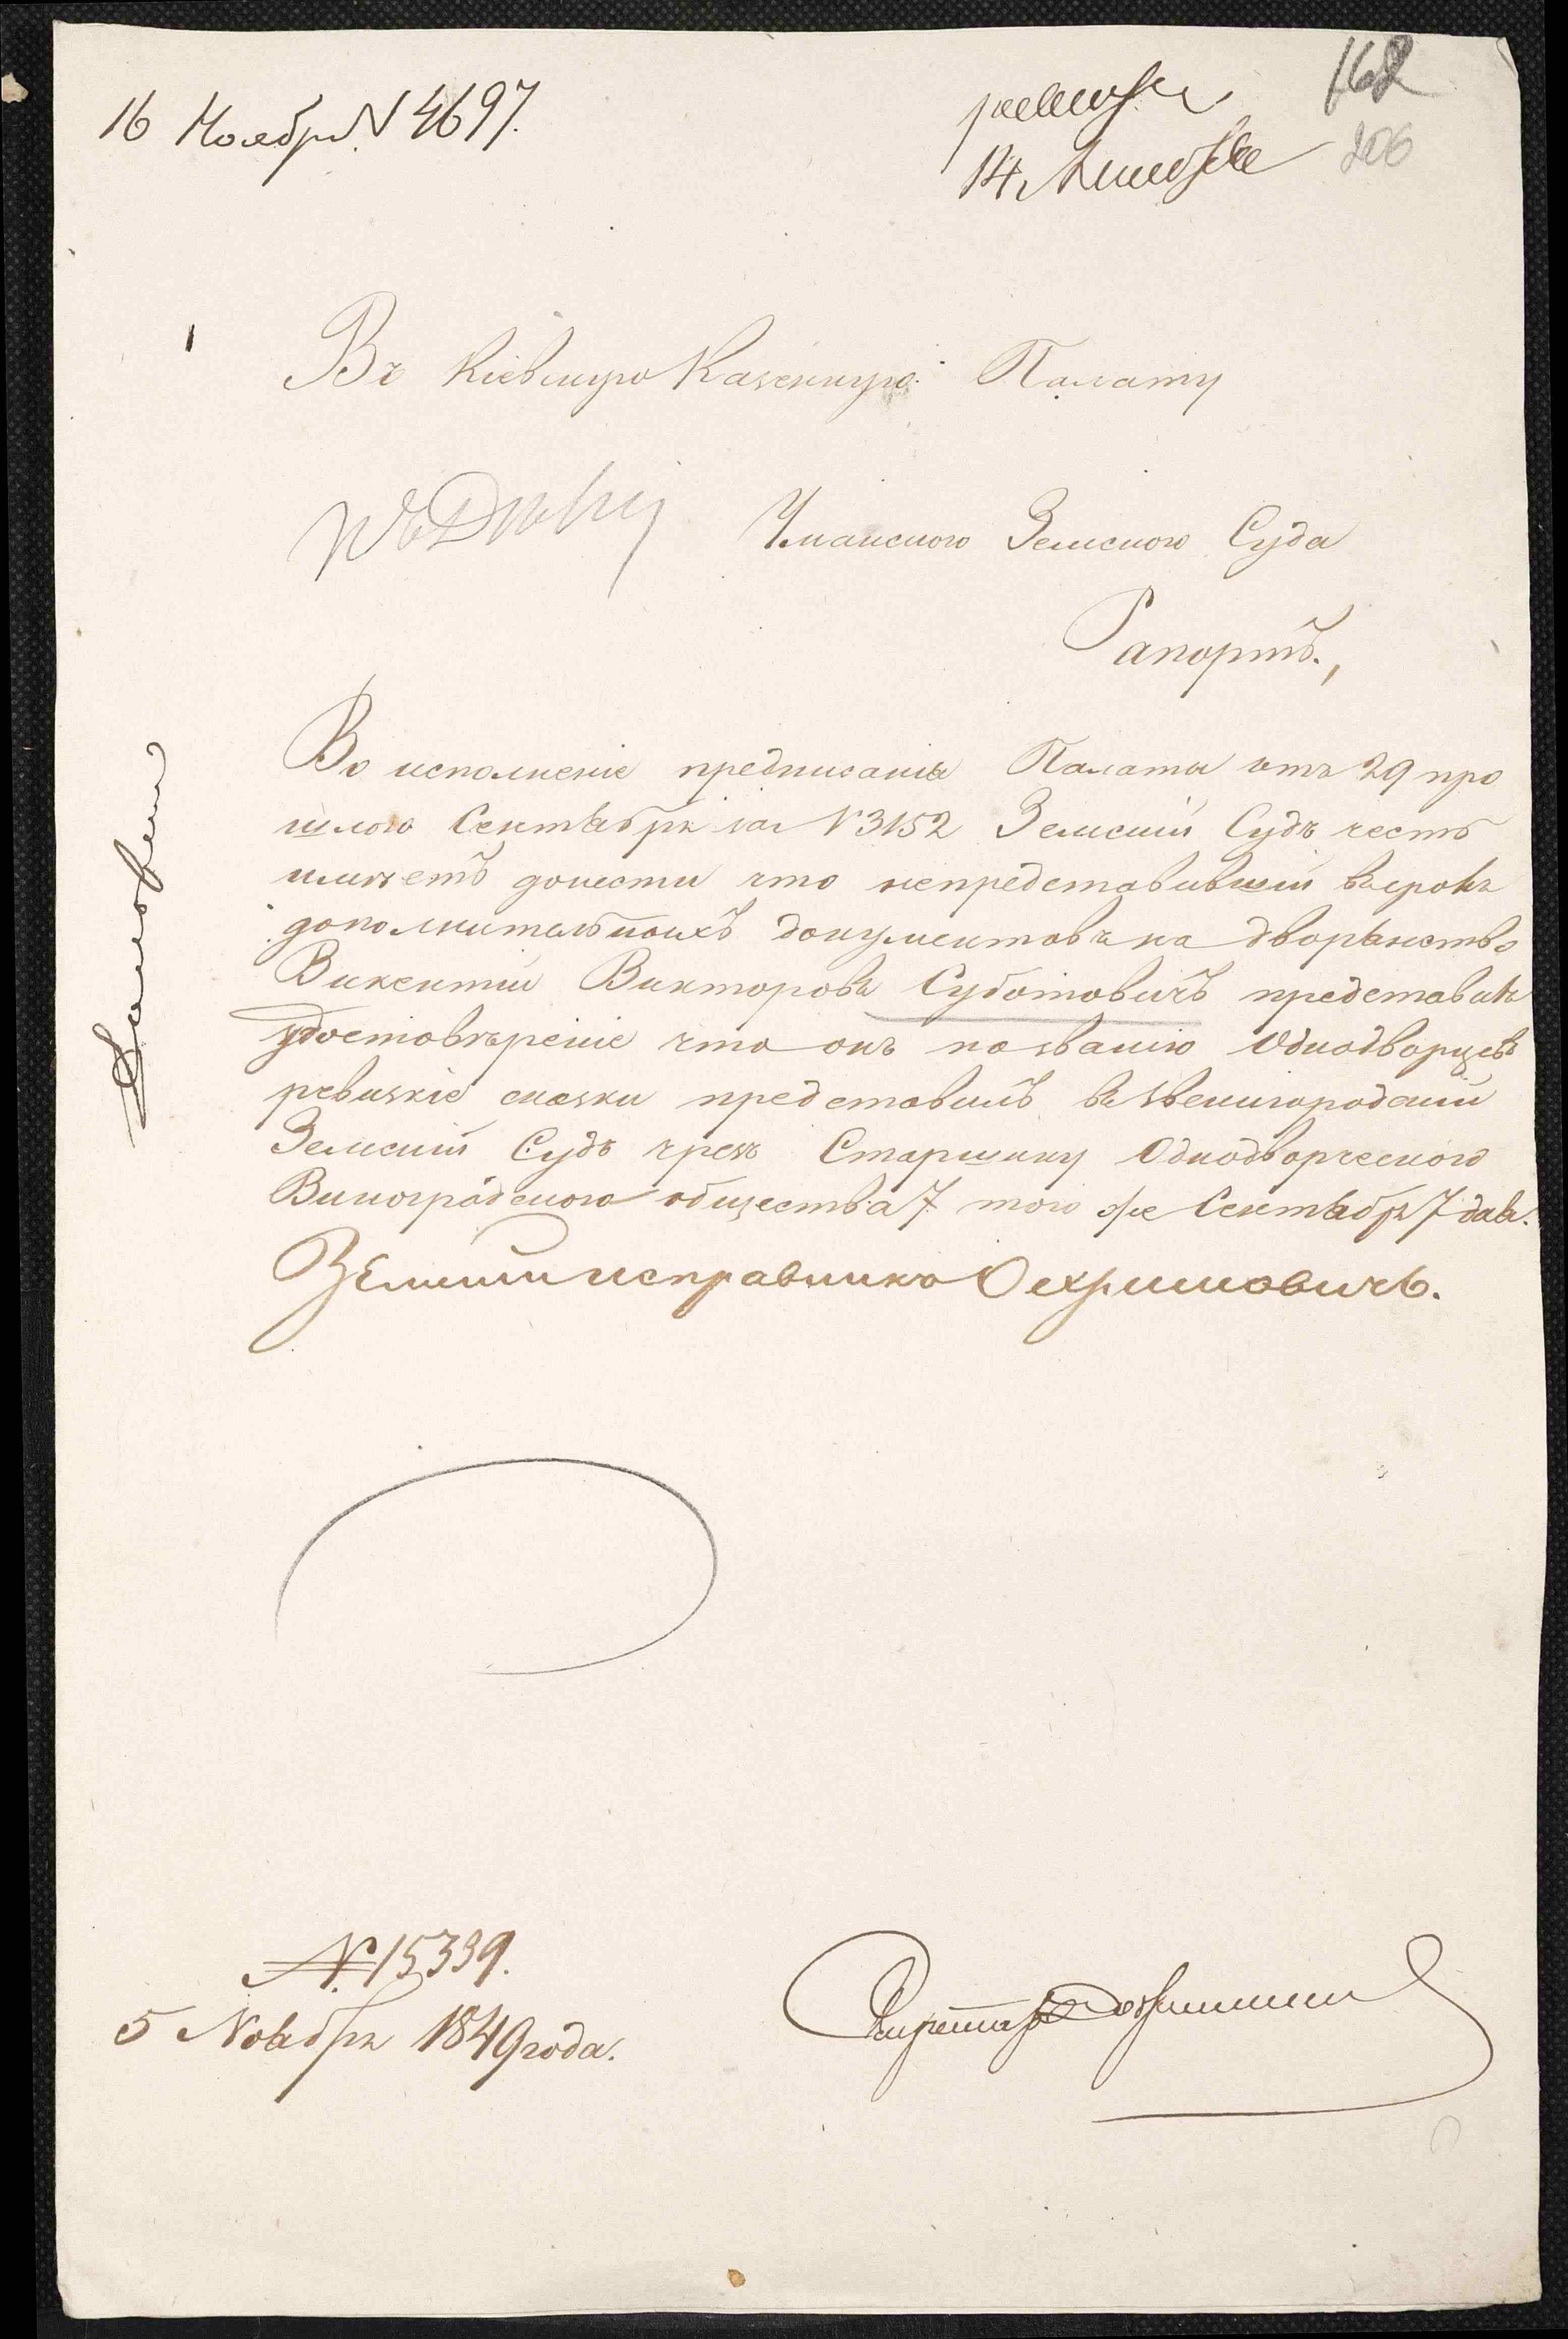 16 Ноября N 4697.
162
206
Въ Кіевскую Казенную Палату
Уманского Земского Суда
Рапортъ.,
Во исполненіе предписанія Палаты отъ 29 про
шлого Сентября за N 3152 Земскій Судъ честь
имѣетъ донести что непредставившій въ срокъ
дополнительныхъ документовъ на дворянство
Викентій Викторовъ Суботовичъ представилъ
удостовѣреніе что онъ по званію Однодворцевъ
ревизкіе сказки представилъ въ Звенигородскій
Земскій Судъ чрезъ Старшину Однодворческого
Виноградского общества 7 того же Сентября 7 дня.
Земскій исправникъ
N. 15339.
5 Ноября 1849 года.
Секретарь